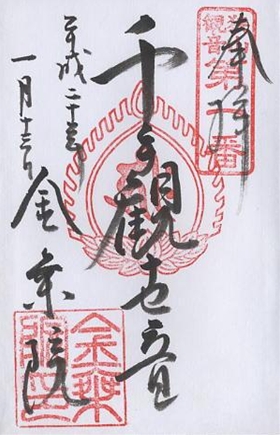 奉拝
觀音
第一番
千手觀世音
平成二十三年
一月十三日
金乗院
金乗
院印